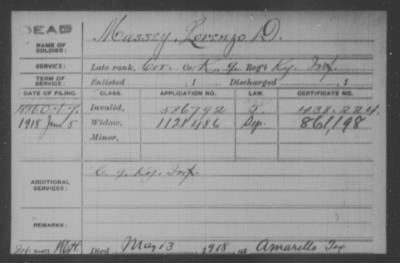 DEAD
NAME OF SOLDIER: Massey, Lorenzo D.
SERVICE: Late rank, Cor. Co. K, 9 Reg't Ky. Inf.
TERM OF SERVICE: Enlisted , 1 Discharged , 1
DATE OF FILING. CLASS. APPLICATION NO. LAW. CERTIFICATE NO.
Invalid, 516792 438.224.
1918 June 5 Widow, 1121486 861,198
Minor,
ADDITIONAL SERVICES: C. 9 Ky. Inf.
REMARKS:
Died May 13, 1918 at Amarillo Tex